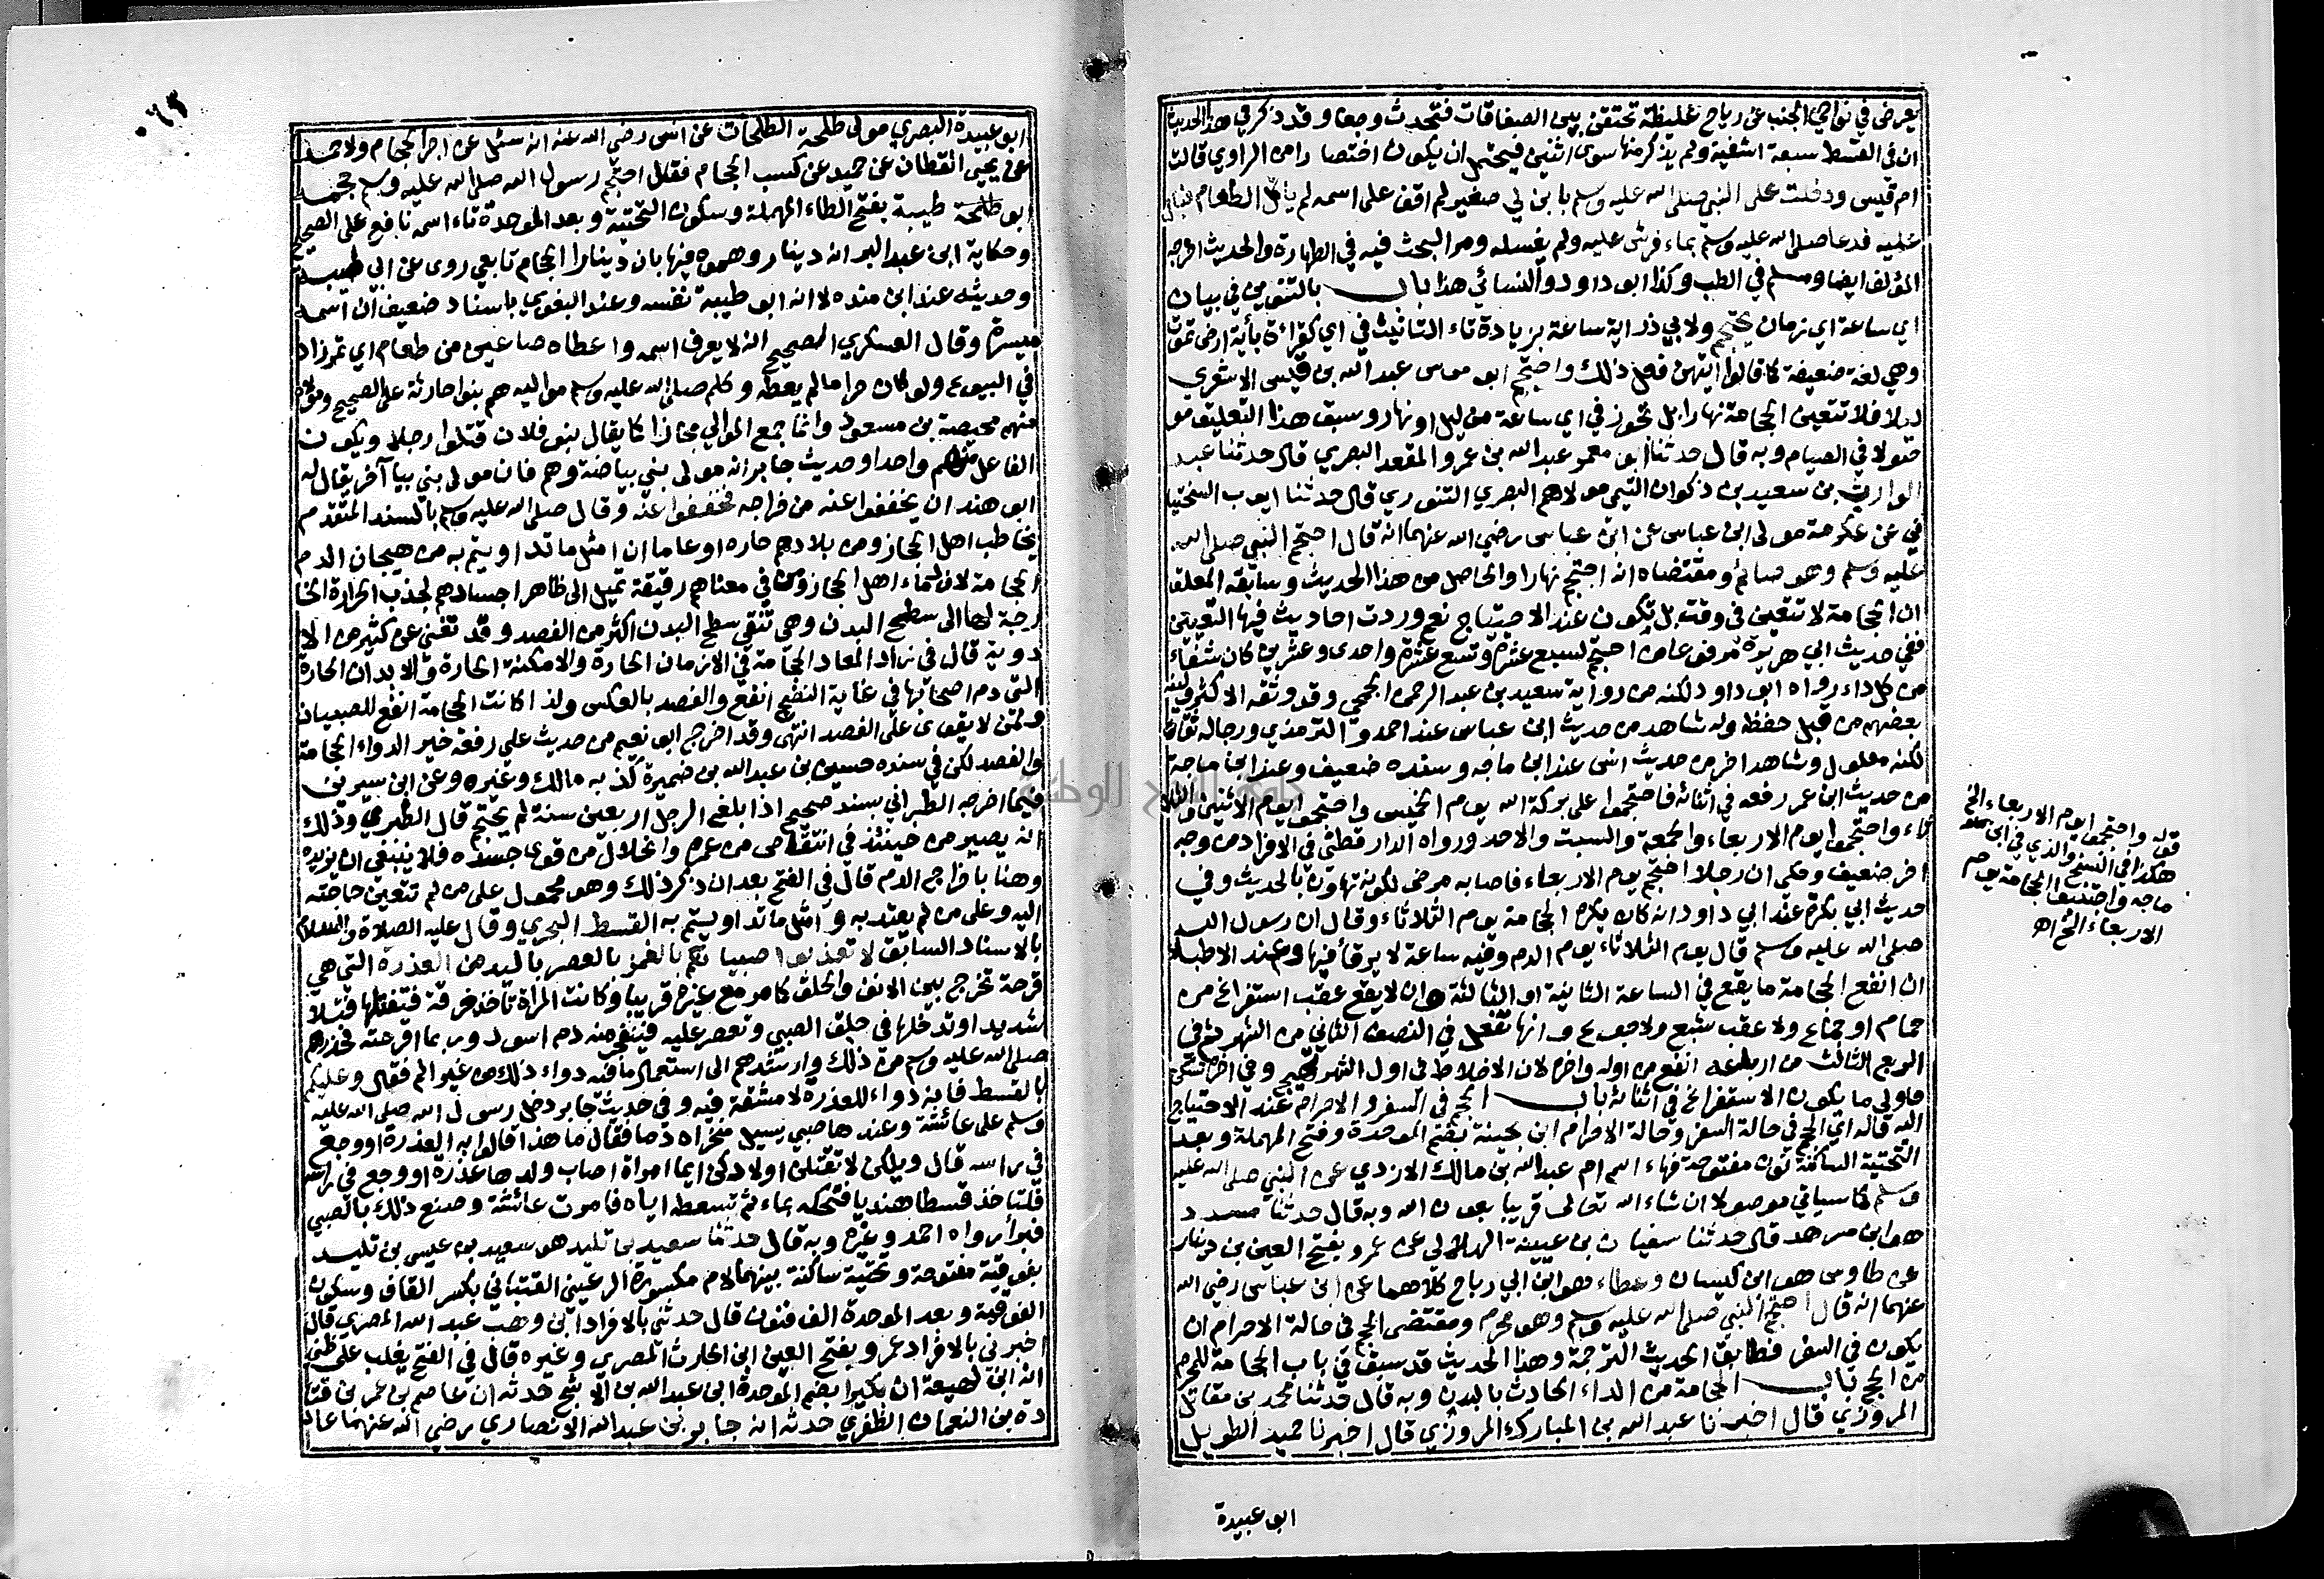 يعرض في نواحي الجنب عن رياح غليظة تحتقن بين الصفاقات فتحدث وجعا وقد ذكر في هذا الحديث
ان في القسط سبعة اشفية ولم يذكر منها سوى اثنين فيحتمل ان يكون اختصارا من الراوي قالت
ام قيس ودخلت على النبي صلى الله عليه وسلم بابن لي صغير لم اقف على اسمه لم ياكل الطعام فبال
عليه فدعا صلى الله عليه وسلم بماء فرش عليه ولم يغسله ومر البحث فيه في الطهارة والحديث اخرجه
المؤلف ايضا ومسلم في الطب وكذا ابو داود والنسائي هذا باب بالتنوين في بيان
اي ساعة اي زمان يحتجم ولابي ذر اية ساعة بزيادة تاء التانيث في اي كقراءة بأية ارض تموت
وهي لغة ضعيفة كما قالوا ايتهن فعل ذلك واحتجم ابو موسى عبد الله بن قيس الاشعري
ليلا فلا تتعين الحجامة نهارا بل تجوز في اي ساعة من ليل او نهار وسبق هذا التعليق مو
صولا في الصيام وبه قال حدثنا ابو معمر عبد الله بن عمرو المقعد البصري قال حدثنا عبد
الوارث بن سعيد بن ذكوان التيمي مولاهم البصري التنوري قال حدثنا ايوب السختيا
ني عن عكرمة مولى ابن عباس عن ابن عباس رضي الله عنهما انه قال احتجم النبي صلى الله
عليه وسلم وهو صائم ومقتضاه انه احتجم نهارا والحاصل من هذا الحديث وسابقه المعلق
ان الحجامة لا تتعين في وقت بل تكون عند الاحتياج نعم وردت احاديث فيها التعيين
ففي حديث ابي هريرة مرفوعا من احتجم لسبع عشرة وتسع عشرة واحدى وعشرين كان شفاء
من كل داء رواه ابو داود لكنه من رواية سعيد بن عبد الرحمن الجمحي وقد وثقه الاكثر ولينه
بعضهم من قبل حفظه وله شاهد من حديث ابن عباس عند احمد والترمذي ورجاله ثقات
لكنه معلول وشاهد اخر من حديث انس عند ابن ماجه وسنده ضعيف وعند ابن ماجة
من حديث ابن عمر رفعه في اثنائه فاحتجموا على بركة الله يوم الخميس واحتجموا يوم الاثنين والثلا
ثاء واحتجموا يوم الاربعاء والجمعة والسبت والاحد ورواه الدارقطني في الافراد من وجه
اخر ضعيف وحكى ان رجلا احتجم يوم الاربعاء فاصابه مرض لكونه تهاون بالحديث وفي
حديث ابي بكرة عند ابي داود انه كان يكره الحجامة يوم الثلاثاء وقال ان رسول الله
صلى الله عليه وسلم قال يوم الثلاثاء يوم الدم وفيه ساعة لا يرقأ فيها وعند الاطباء
ان انفع الحجامة ما يقع في الساعة الثانية او الثالثة وان لا يقع عقب استفراغ من
حمام او جماع ولا عقب شبع ولا جوع وانها تفعل في النصف الثاني من الشهر ثم في
الربع الثالث من ارباعه انفع من اوله واخره لان الاخلاط في اول الشهر تهيج وفي اخره تسكن
فاولى ما يكون الاستفراغ في اثنائه باب الحجم في السفر والاحرام عند الاحتياج
اليه قاله اي الحجم في حالة السفر وحالة الاحرام ابن بحينة بضم الموحدة وفتح المهملة وبعد
التحتية الساكنة نون مفتوحة فهاء اسم ام عبد الله بن مالك الازدي عن النبي صلى الله عليه
وسلم كما سياتي موصولا ان شاء الله تعالى قريبا بعون الله وبه قال حدثنا مسدد
هو ابن مسرهد قال حدثنا سفيان بن عيينة الهلالي عن عمرو بفتح العين بن دينار
عن طاوس هو ابن كيسان وعطاء هو ابن ابي رباح كلاهما عن ابن عباس رضي الله
عنهما انه قال احتجم النبي صلى الله عليه وسلم وهو محرم ومقتضى الحجم في حالة الاحرام ان
يكون في السفر فطابق الحديث الترجمة وهذا الحديث قد سبق في باب الحجامة للمحرم
من الحج باب الحجامة من الداء الحادث بالبدن وبه قال حدثنا محمد بن مقاتل
المروزي قال اخبرنا عبد الله بن المبارك المروزي قال اخبرنا حميد الطويل
ابو عبيدة
قوله واحتجموا يوم الاربعاء الخ
هكذا في النسخ والذي في ابن
ماجه واجتنبوا الحجامة يوم
الاربعاء الخ اه
٠٦٣
ابو عبيدة البصري مولى طلحة الطلحات عن انس رضي الله عنه انه سئل عن اجر الحجام ولاحمد
عن يحيى القطان عن حميد عن كسب الحجام فقال احتجم رسول الله صلى الله عليه وسلم حجمه
ابو طلحة طيبة بفتح الطاء المهملة وسكون التحتية وبعد الموحدة تاء اسمه نافع على الصحيح
وحكاية ابن عبد البر انه دينار وهموه فيها بان دينارا الحجام تابعي روى عن ابي طيبة
وحديثه عند ابن منده لا انه ابو طيبة نفسه وعند البغوي باسناد ضعيف ان اسمه
ميسرة وقال العسكري الصحيح انه لا يعرف اسمه واعطاه صاعين من طعام اي تمر زاد
في البيوع ولو كان حراما لم يعطه وكلم صلى الله عليه وسلم مواليه هم بنوا حارثة على الصحيح ومولاه
منهم محيصة بن مسعود وانما جمع الموالي مجازا كما يقال بنو فلان قتلوا رجلا ويكون
الفاعل منهم واحدا وحديث جابر انه مولى بني بياضة وهم فان مولى بني بياضة آخر يقال له
ابو هند ان يخففوا عنه من خراجه فخففوا عنه وقال صلى الله عليه وسلم بالسند المتقدم
يخاطب اهل الحجاز ومن بلادهم حارة او عاما ان امثل ما تداويتم به من هيجان الدم
الحجامة لان دماء اهل الحجاز ومن في معناهم رقيقة تميل الى ظاهر اجسادهم لجذب الحرارة الخا
رجة لها الى سطح البدن وهي تنقي سطح البدن اكثر من الفصد وقد تغني عن كثير من الا
دوية قال في زاد المعاد الحجامة في الازمان الحارة والامكنة الحارة والابدان الحارة
التي دم اصحابها في غاية النضج انفع والفصد بالعكس ولذا كانت الحجامة انفع للصبيان
ولمن لا يقوى على الفصد انتهى وقد اخرج ابو نعيم من حديث علي رفعه خير الدواء الحجامة
والفصد لكن في سنده حسين بن عبد الله بن ضميرة كذبه مالك وغيره وعن ابن سيرين
فيما اخرجه الطبراني بسند صحيح اذا بلغ الرجل اربعين سنة لم يحتجم قال الطبري وذلك
انه يصير من حينئذ في انتقاص من عمره وانحلال من قوى جسده فلا ينبغي ان يزيده
وهنا باخراج الدم قال في الفتح بعد ان ذكر ذلك وهو محمول على من لم تتعين حاجته
اليه وعلى من لم يعتد به وامثل ما تداويتم به القسط البحري وقال عليه الصلاة والسلام
بالاسناد السابق لا تعذبوا صبيانكم بالغمز بالعصر باليد من العذرة التي هي
قرحة تخرج بين الانف والحلق كما مر مع غيره قريبا وكانت المراة تاخذ خرقة فتفتلها فتلا
شديدا وتدخلها في حلق الصبي وتعصر عليه فينفجر منه دم اسود وربما اقرحته فحذرهم
صلى الله عليه وسلم من ذلك وارشدهم الى استعمال ما فيه دواء ذلك من غير الم فقال وعليكم
بالقسط فانه دواء للعذرة لا مشقة فيه وفي حديث جابر دخل رسول الله صلى الله عليه
وسلم على عائشة وعندها صبي يسيل منخراه دما فقال ما هذا قالوا به العذرة او وجع
في راسه قال ويلكن لا تقتلن اولادكن ايما امراة اصاب ولدها عذرة او وجع في راسه
فلتاخذ قسطا هنديا فتحكه بماء ثم تسعطه اياه فامرت عائشة وصنع ذلك بالصبي
فبرأ رواه احمد وغيره وبه قال حدثنا سعيد بن تليد هو سعيد بن عيسى بن تليد
بفوقية مفتوحة وتحتية ساكنة بينهما لام مكسورة الرعيني القتباني بكسر القاف وسكون
الفوقية وبعد الموحدة الف فنون قال حدثني بالافراد ابن وهب عبد الله المصري قال
اخبرني بالافراد عمرو بفتح العين ابن الحارث المصري وغيره قال في الفتح يغلب على ظني
انه ابن لهيعة ان بكيرا بضم الموحدة ابن عبد الله بن الاشج حدثه ان عاصم بن عمر بن قتا
دة بن النعمان الظفري حدثه ان جابر بن عبد الله الانصاري رضي الله عنهما عاد